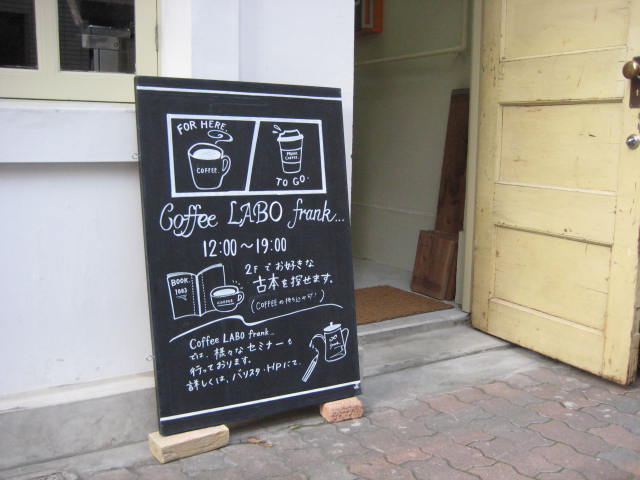 FOR HERE.
COFFEE.
TO GO.
Coffee LABO frank...
12:00〜19:00
2Fでお好きな
古本を探せます。
BOOK
1003
COFFEE
(COFFEEの持ち込み可!)
Coffee LABO frank...
では、様々なセミナーも
行っております。
詳しくは、バリスタ・HPにて。